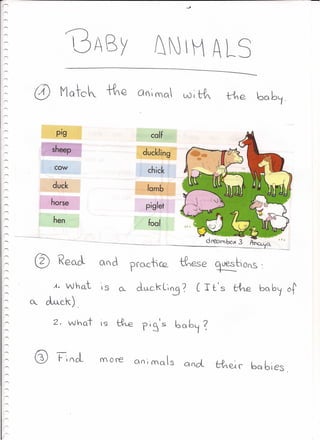 BABY ANIMALS
1 Match the animal with the baby.
pig calf
sheep duckling
cow chick
duck lamb
horse piglet
hen foal
dreambox 3 Anaya
2 Read and practice these questions.
1. What is a duckling? (It's the baby of
a duck).
2. What is the pig's baby?
3 Find more animals and their babies.